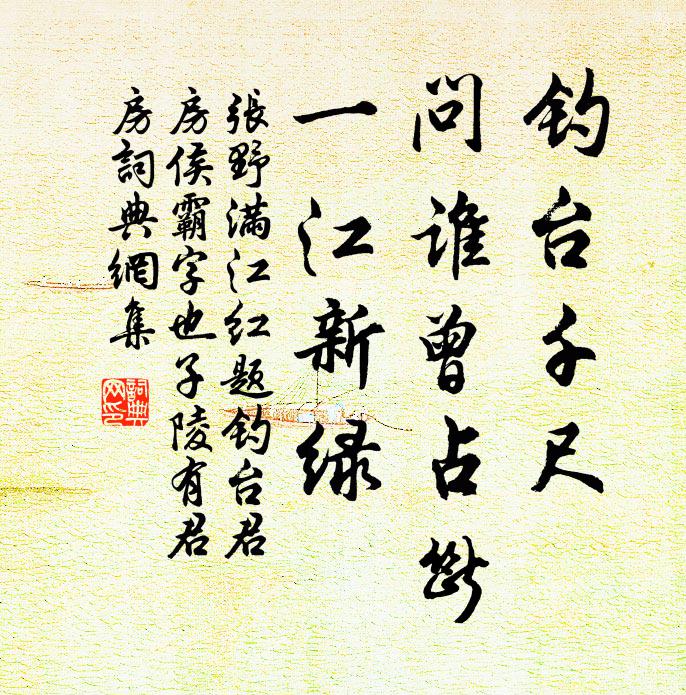 钓台千尺
问谁曾占断
一江新绿
張野满江红题钓台君
房侯霸字也子陵有君
房詞典網集
詞典网印